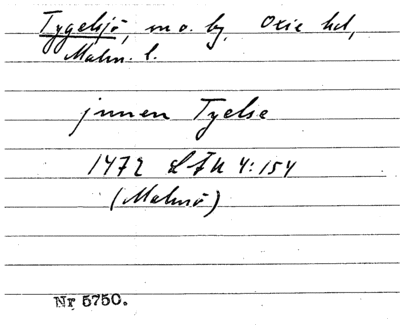 Tygelsjö, sn o. by, Oxie hd,
Malm. l.
jnnen Tyelse
1472 LFU 4:154
(Malmö)
Nr 5750.